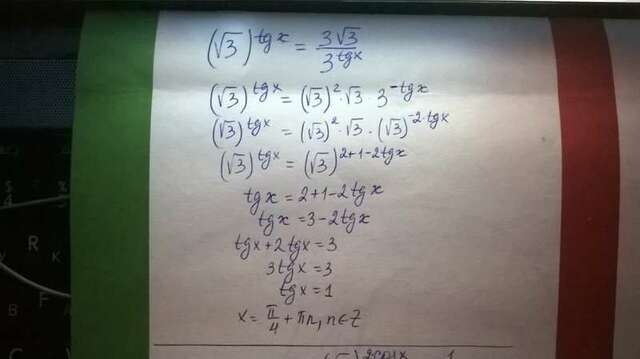 (√3)^tgx = 3√3 / 3^tgx
(√3)^tgx = (√3)^2 · √3 · 3^-tgx
(√3)^tgx = (√3)^2 · √3 · (√3)^-2·tgx
(√3)^tgx = (√3)^2+1-2tgx
tgx = 2+1-2tgx
tgx = 3-2tgx
tgx+2tgx=3
3tgx=3
tgx=1
x = π/4 + πn, n∈Z